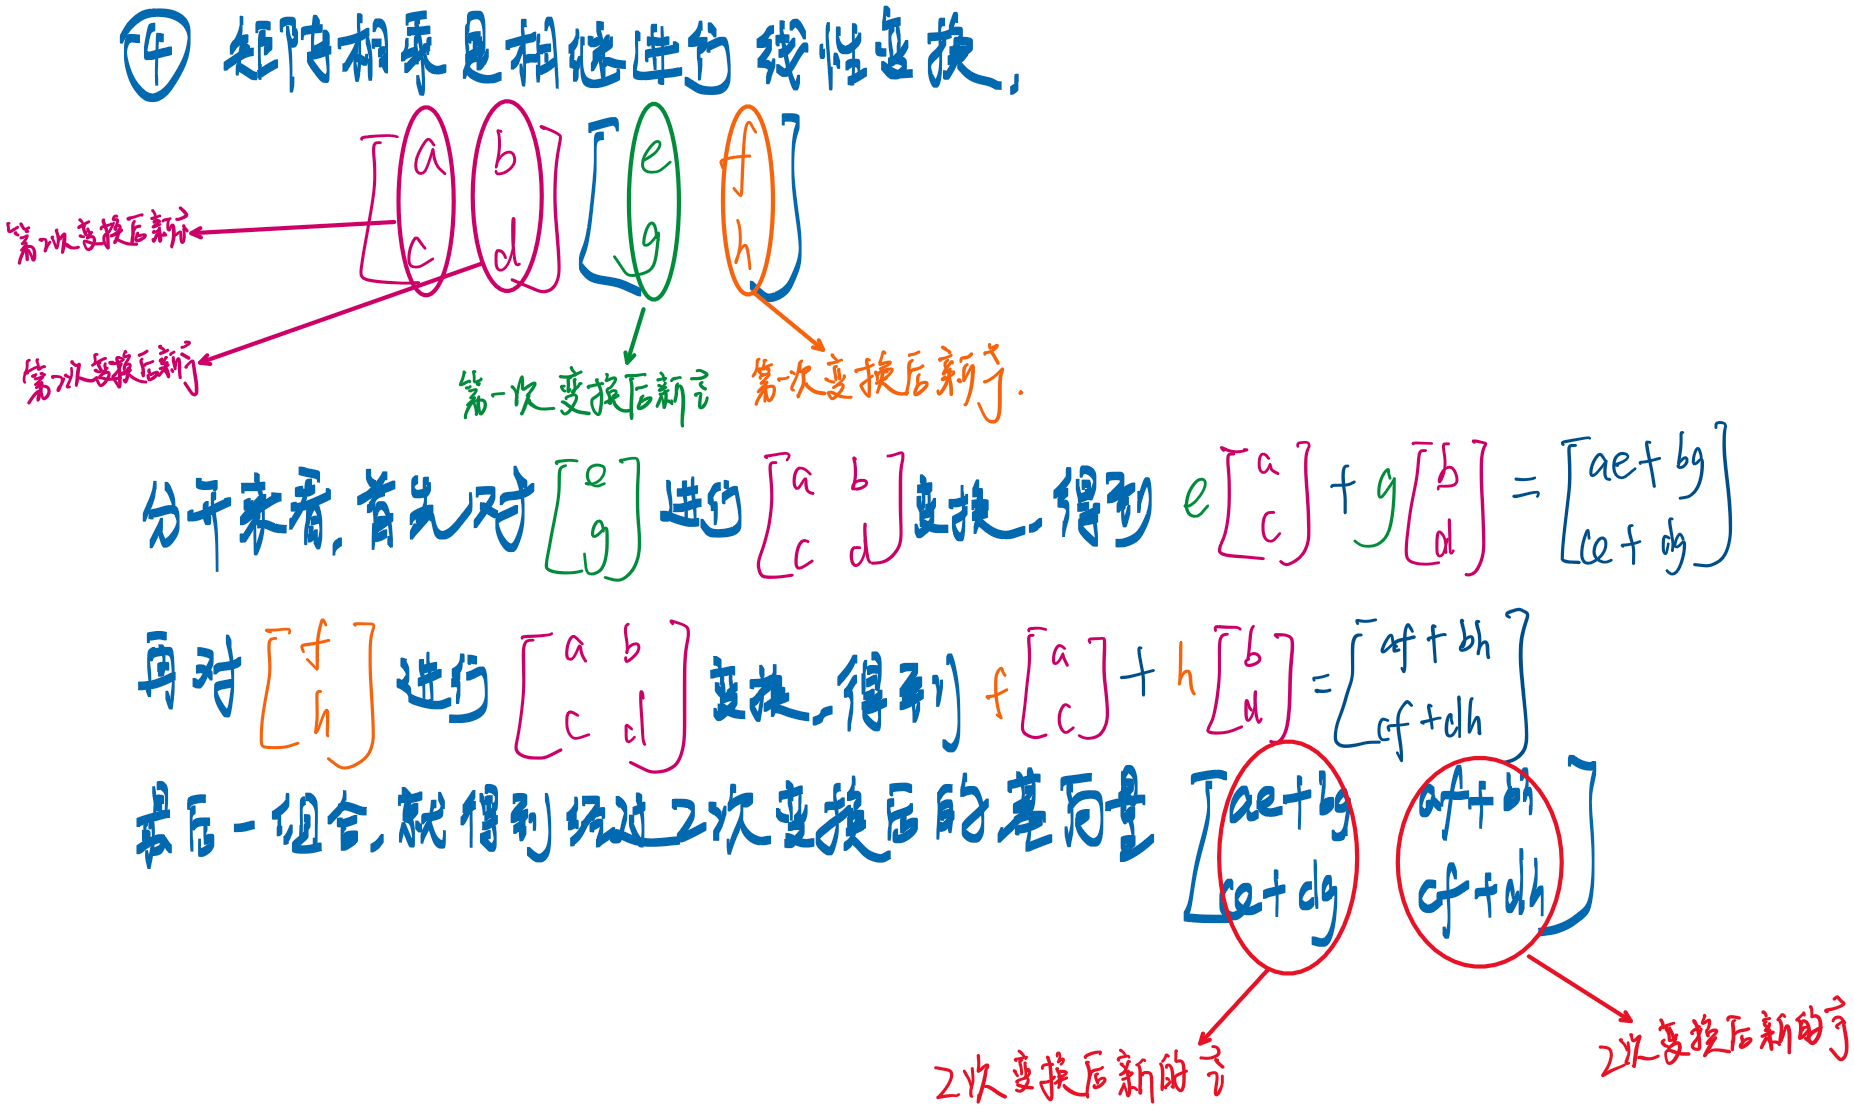 ④ 矩阵相乘是相继进行线性变换,
[a b; c d] [e f; g h]
第2次变换后新i⃗
第2次变换后新j⃗
第一次变换后新i⃗ 第一次变换后新j⃗.
分开来看,首先对 [e; g] 进行 [a b; c d] 变换,得到 e[a; c] + g[b; d] = [ae+bg; ce+dg]
再对 [f; h] 进行 [a b; c d] 变换,得到 f[a; c] + h[b; d] = [af+bh; cf+dh]
最后一组合,就得到经过2次变换后的基向量 [ae+bg af+bh; ce+dg cf+dh]
2次变换后新的i⃗
2次变换后新的j⃗